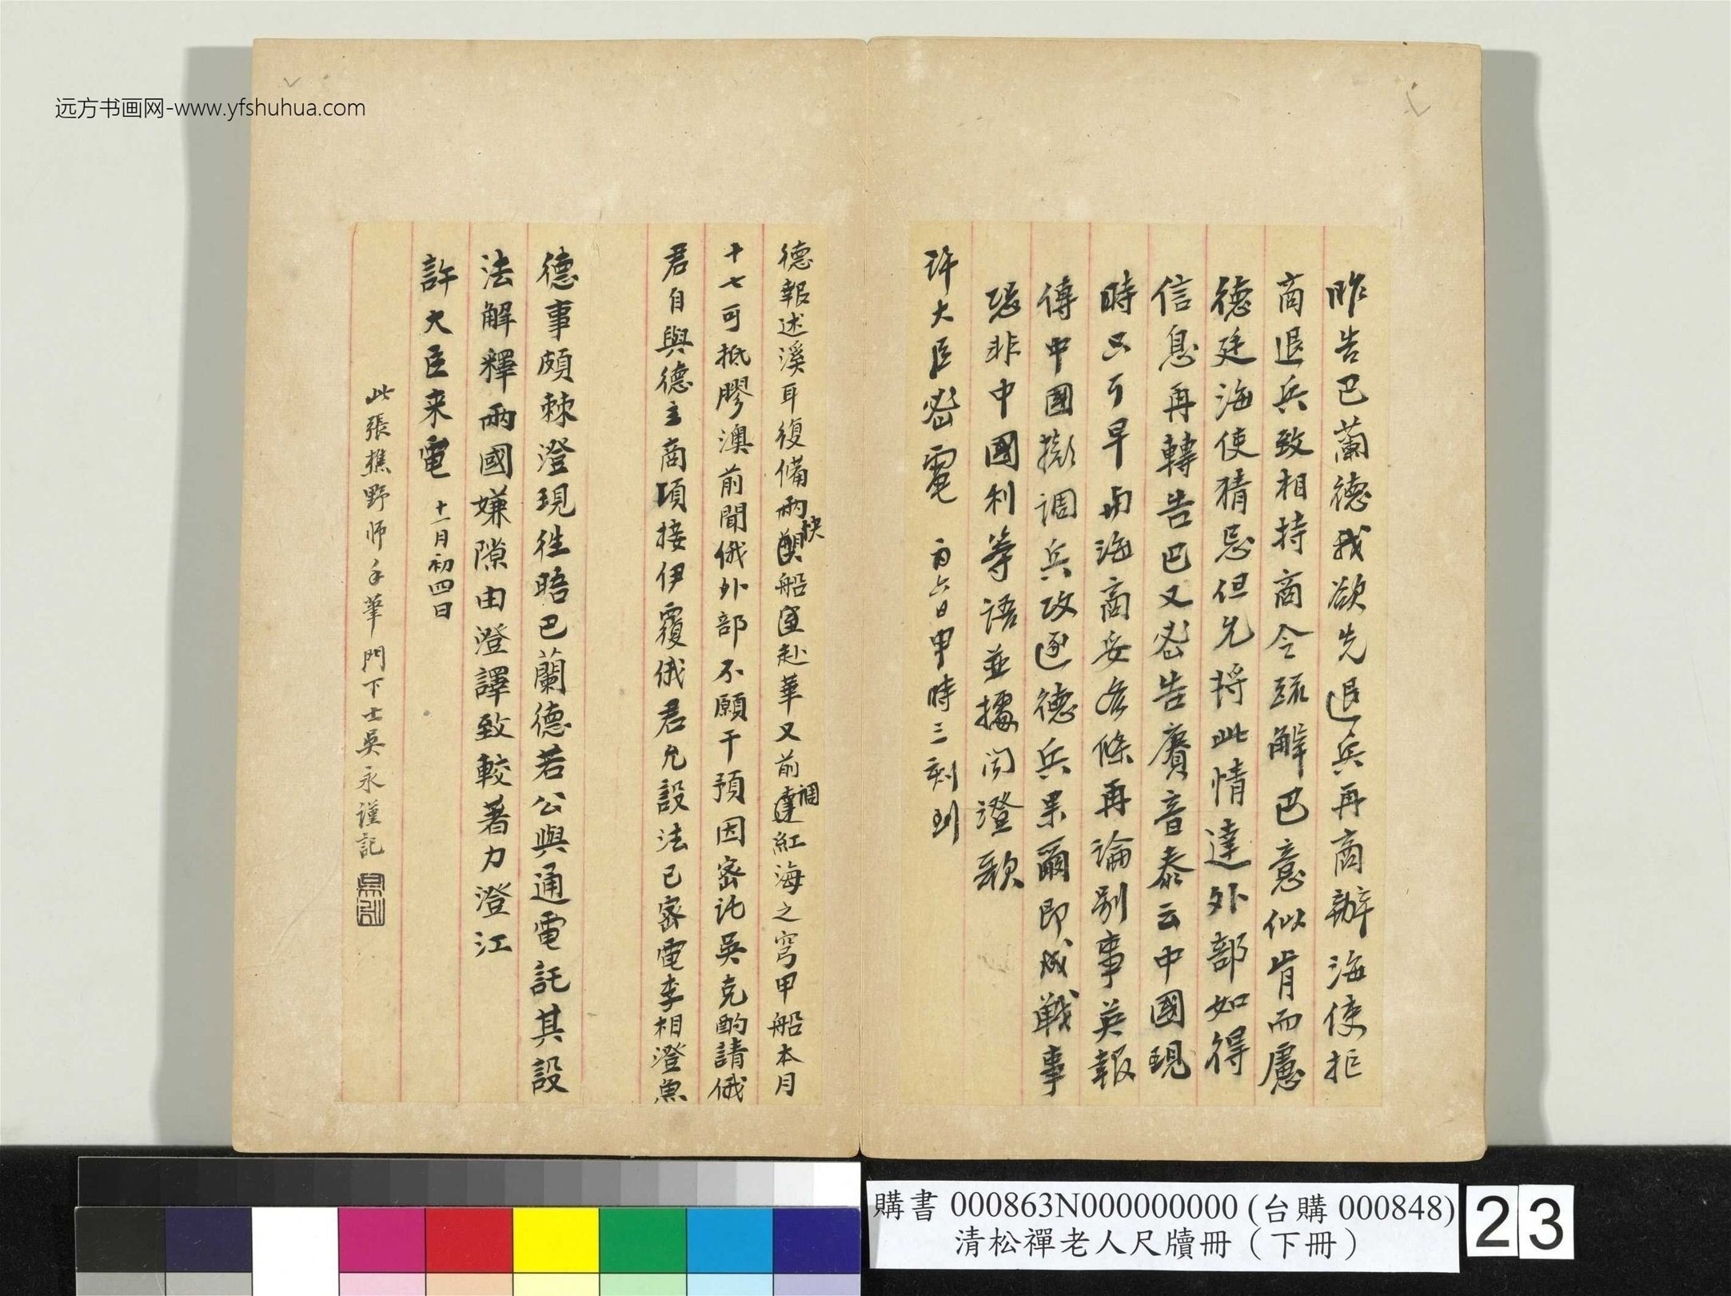 远方书画网-www.yfshuhua.com
昨告巴蘭德我欲先退兵再商辦海使拒
商退兵致相持商令疏解巴意似肯而慮
德廷海使猜忌但允將此情達外部如得
信息再轉告巴又密告賡音泰云中國現
時只可早與海商妥各條再論別事英報
傳中國擬調兵攻逐德兵果爾即成戰事
恐非中國利等語並據聞澄歌
許大臣密電 初六日申時三刻到
德報述溪耳復備兩快船赴華又前調紅海之穹甲船本月
十七可抵膠澳前聞俄外部不願干預因密託吳克酌請俄
君自與德主商頃接伊覆俄君允設法已密電李相澄魚
德事頗棘澄現往晤巴蘭德若公與通電託其設
法解釋兩國嫌隙由澄譯致較著力澄江
許大臣来電 十一月初四日
此張樵野師手筆門下士吳永謹記
購書 000863N000000000 (台購 000848)
清松禪老人尺牘冊（下冊）
23